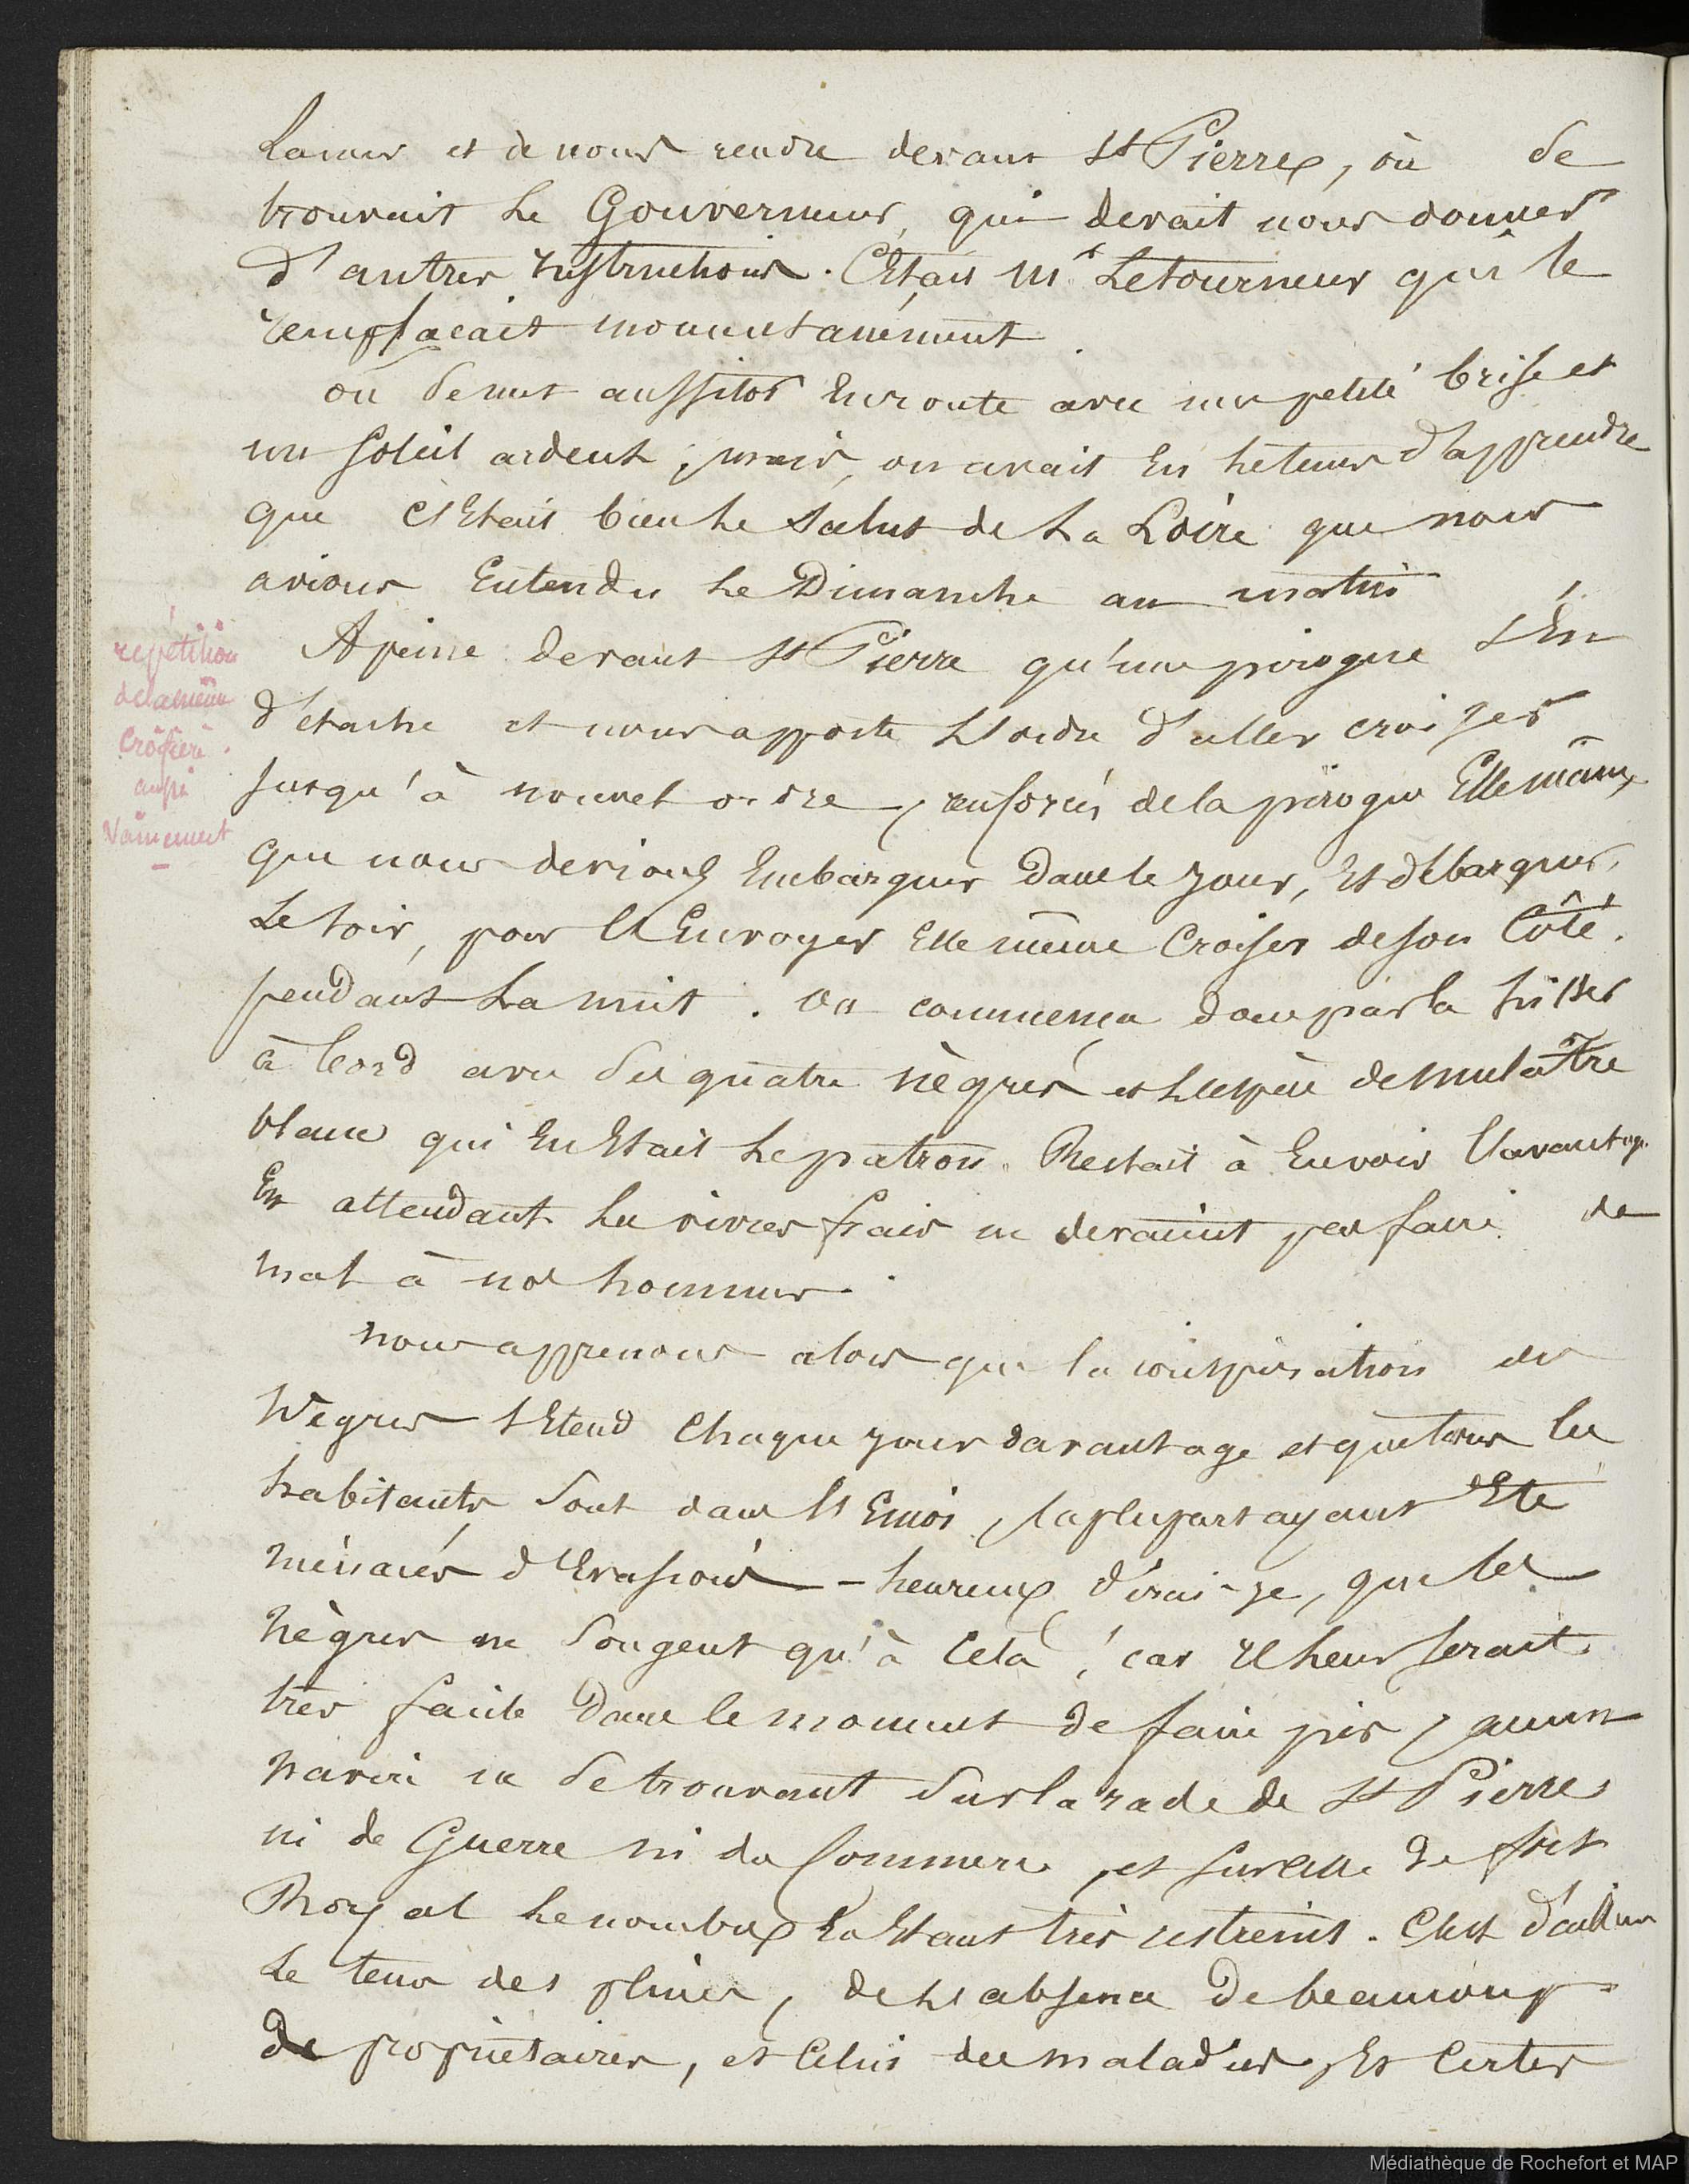 et de nous rendre devant St Pierre, où se
trouvait le Gouverneur, qui devait nous donner
d'autres instructions. C'était Mr Letourneur qui le
remplaçait momentanément
on se mit aussitôt en route avec une petite brise et
un soleil ardent, mais, on avait eu le tems d'apprendre
que c'était bien le salut de la Loire que nous
avions entendu le Dimanche au matin
répétition
de la même
Croisière.
aussi
Vainement
A peine devant St Pierre qu'une pirogue s'en
détache et nous apporte l'ordre d'aller croiser
jusqu'à nouvel ordre, renforcés de la pirogue Elle même,
que nous devions Embarquer dans le jour, et débarquer
le soir, pour l'Envoyer Elle même Croiser de son Côté.
pendant la nuit. on commença donc par la hisser
à bord avec ses quatre nègres et l'espèce de mulâtre
blanc qui en était le patron. Restait à En voir l'avantage.
En attendant les vivres frais ne devaient pas faire de
mal à nos hommes.
nous apprenons alors que la conspiration des
Nègres s'étend Chaque jour davantage et que tous les
habitants sont dans l'Emoi, la plupart ayant Eté
ménacés d'Evasions - heureux dirai-je, que les
Nègres ne songent qu'à Cela, car il leur serait
très facile dans le moment de faire pis, aucun
navire ne se trouvant sur la rade de St Pierre
ni de Guerre ni du Commerce, et sur celle de fort
Royal le nombre en étant très restreint. C'est d'ailleurs
le tems des pluies, de l'absence de beaucoup
de propriétaires, et Celui des maladies, Et Certes